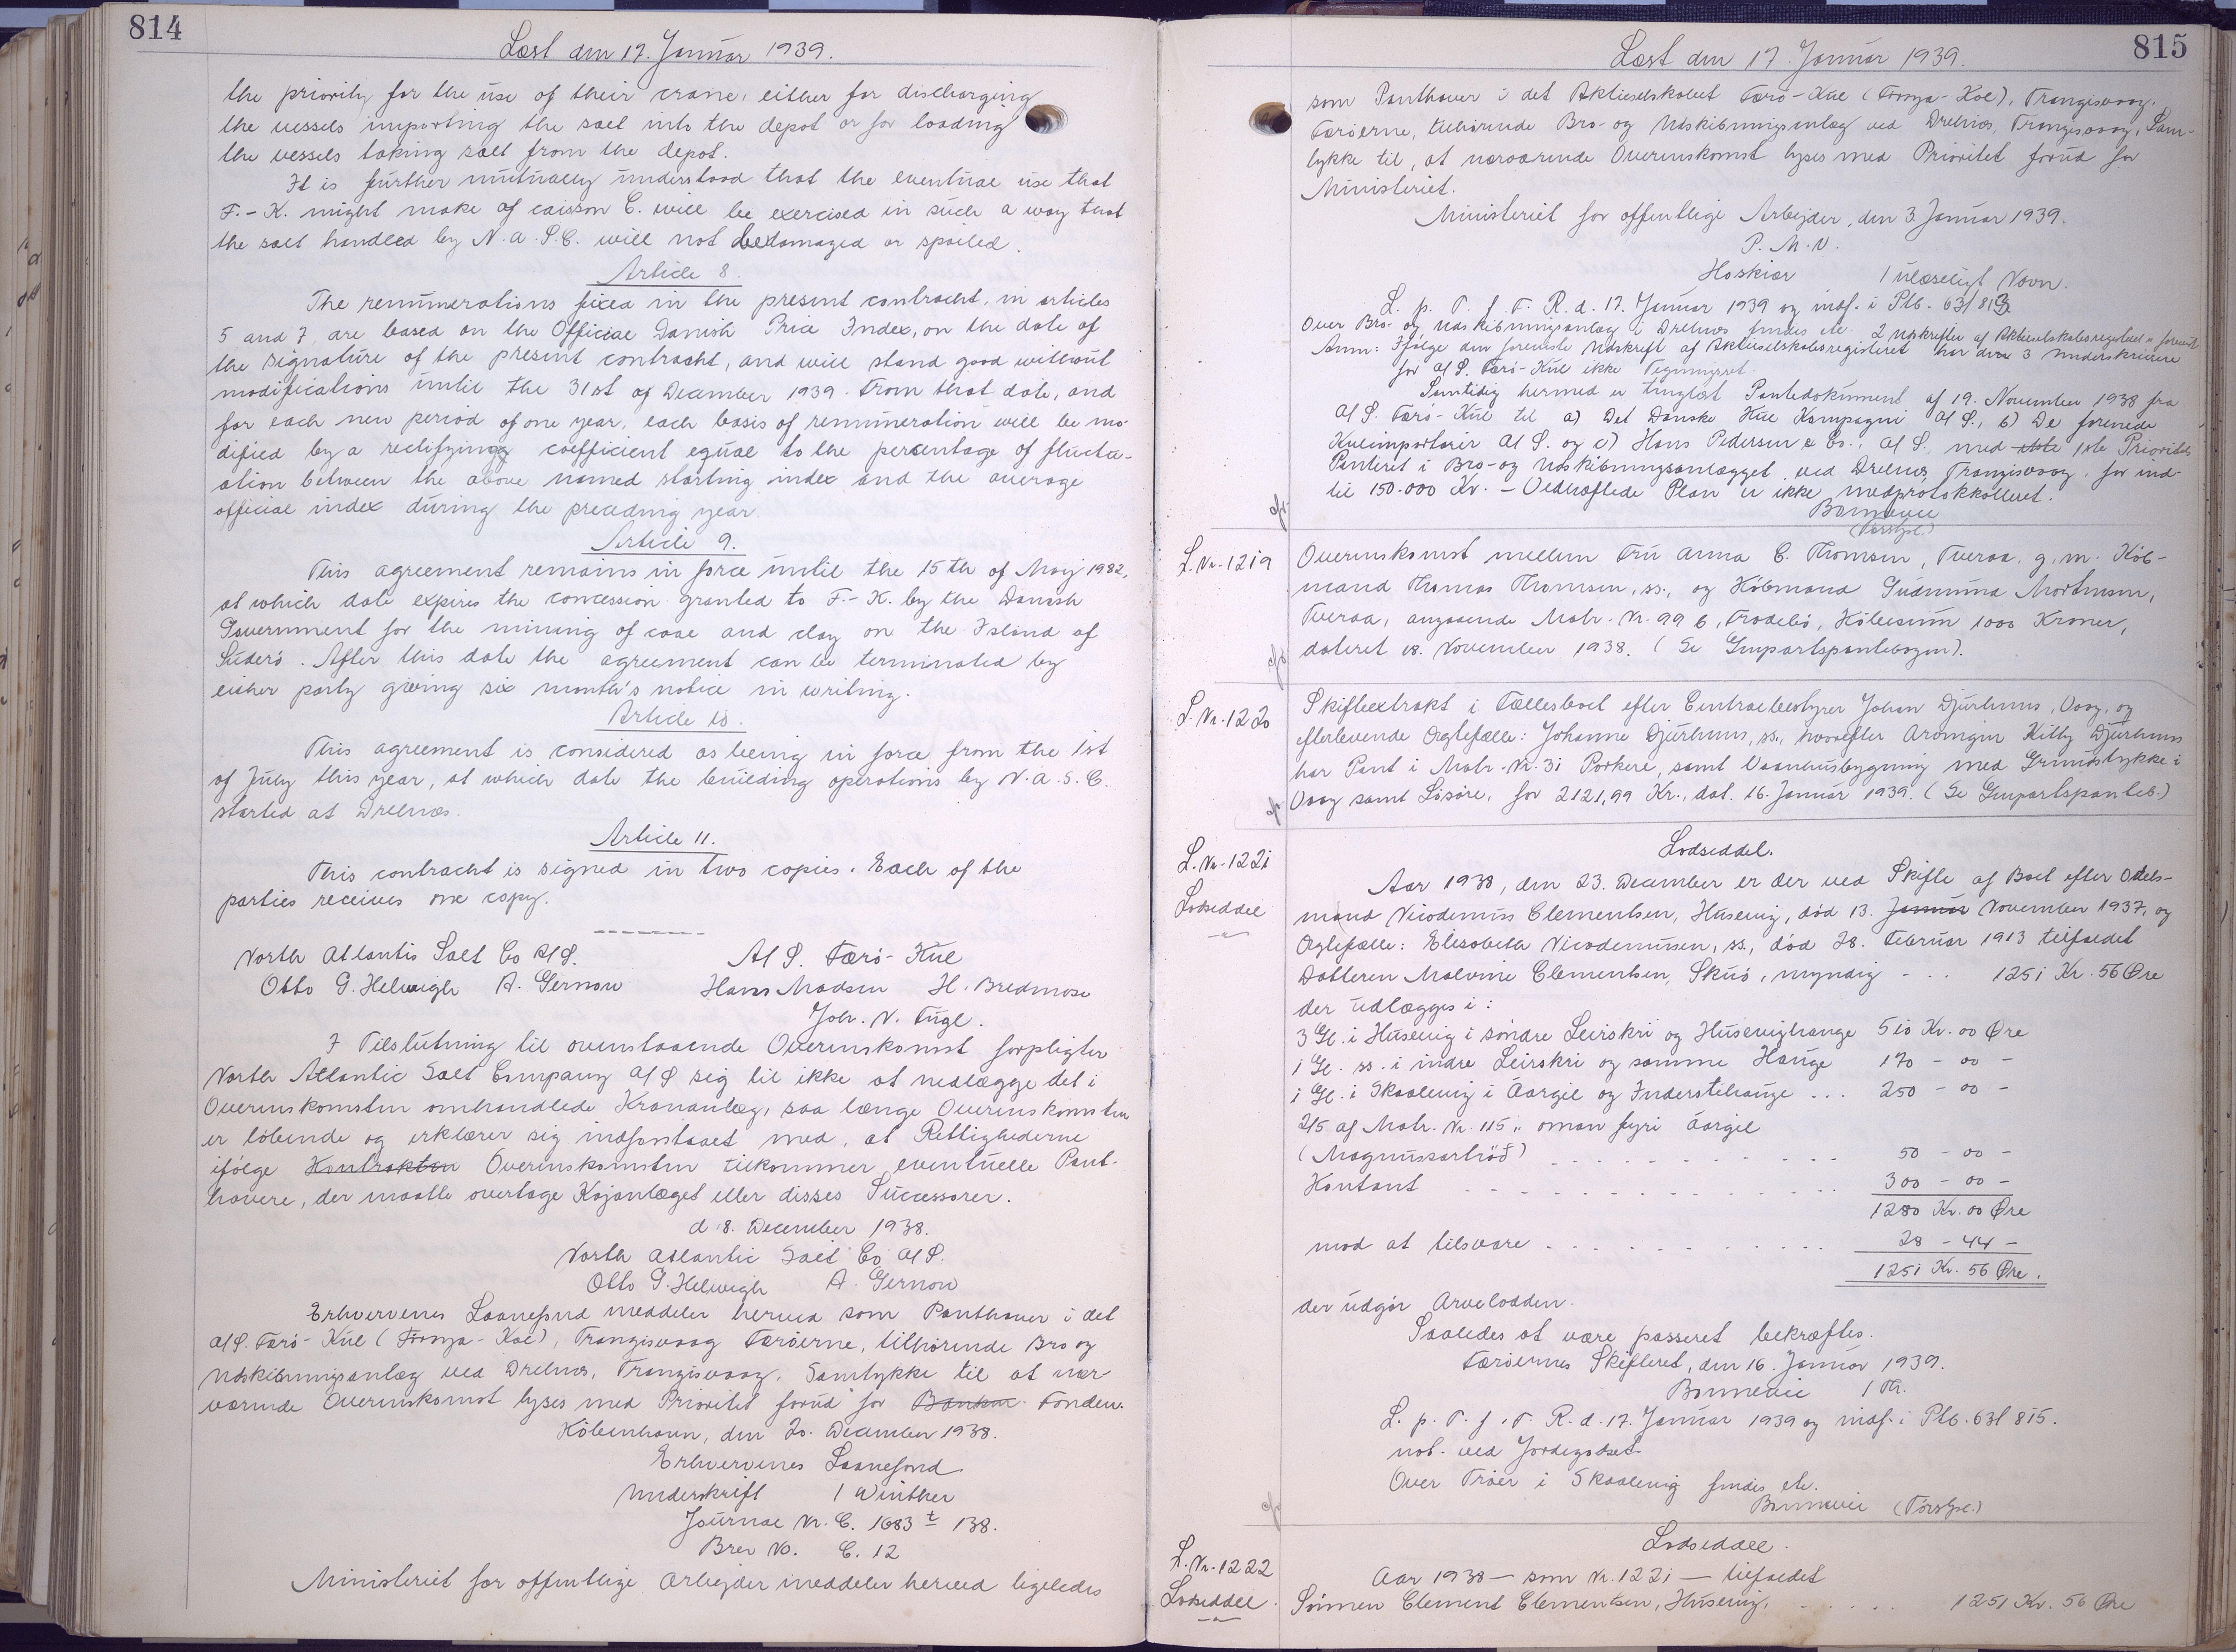 814
Læst den 17. Januar 1939.
the priority for the use of their crane, either for discharging
the vessels importing the salt into the depot or for loading
the vessels taking salt from the depot.
It is further mutually understood that the eventual use that
F.-K. might make of caisson C. will be exercised in such a way that
the salt handled by N.A.S.C. will not be damaged or spoiled.
Article 8.
The remunerations fixed in the present contracht, in articles
5 and 7 are based on the Official Danish Price Index, on the date of
the signature of the present contracht, and will stand good without
modifications until the 31st of December 1939. From that date, and
for each new period of one year, each basis of remuneration will be mo-
dified by a rectifying coefficient equal to the percentage of fluctu-
ation between the above named starting index and the average
official index during the preceding year.
Article 9.
This agreement remains in force until the 15th of May 1982,
at which date expires the concession granted to F.-K. by the Danish
Government for the mining of coal and clay on the Island of
Suderö. After this date the agreement can be terminated by
either party giving six month's notice in writing.
Article 10.
This agreement is considered as being in force from the 1st
of July this year, at which date the building operations by N.A.S.C.
started at Drelnæs.
Article 11.
This contracht is signed in two copies. Each of the
parties receives one copy.
North Atlantis Salt Co A/S. A/S. Færö-Kul
Otto G. Helweigh A. Gernow Hans Madsen H. Bredmose
Joh. N. Fugl.
I Tilslutning til ovenstaaende Overenskomst forpligter
North Atlantic Salt Company A/S sig til ikke at nedlægge det i
Overenskomsten omhandlede Krananlæg, saa længe Overenskomsten
er löbende og erklærer sig indforstaaet med, at Rettighederne
ifölge Kontrakten Overenskomsten tilkommer eventuelle Pant-
havere, der maatte overtage Kajanlæget eller disses Successorer.
d. 8. December 1938.
North Atlantic Salt Co A/S.
Otto G. Helweigh A. Gernow
Erhvervenes Laanefond meddeler herved som Panthaver i det
A/S. Færö-Kul (Föroya-Kol), Trangisvaag Færöerne, tilhörende Bro og
Udskibningsanlæg ved Drelnæs, Trangisvaag, Samtykke til at nær-
værende Overenskomst lyses med Prioritet forud for Banken Fonden.
Köbenhavn, den 20. December 1938.
Erhvervenes Laanefond
Underskrift / Winther
Journal Nr. C. 1683 t 138.
Brev No. C. 12
Ministeriet for offentlige Arbejder meddeler herved ligeledes
815
Læst den 17. Januar 1939.
som Panthaver i det Aktieselskabet Færö-Kul (Föroya-Kol), Trangisvaag,
Færöerne, tilhörende Bro- og Udskibningsanlæg ved Drelnæs, Trangisvaag, Sam-
tykke til, at nærværende Overenskomst lyses med Prioritet forud for
Ministeriet.
Ministeriet for offentlige Arbejder, den 3. Januar 1939.
P. M. V.
Hoskiær / ulæseligt Navn.
L. p. T. f. F. R. d. 17. Januar 1939 og indf. i Ptb. 63/813
Over Bro- og Udskibningsanlæg i Drelnæs findes etc. 2 Udskrifter af Aktieselskabsregisteret er forevist
Anm: Ifølge den foreviste Udskrift af Aktieselskabsregisteret har de 3 Underskrivere
for A/S. Færö-Kul ikke Tegningsret.
Samtidig hermed er tinglæst Pantedokument af 19. November 1938 fra
A/S. Færö-Kul til a) Det Danske Kul Kompagni A/S., b) De forenede
Kulimportører A/S. og c) Hans Pedersen & Co., A/S. med 1ste Prioritets
Panteret i Bro- og Udskibningsanlægget ved Drelnæs, Trangisvaag, for ind-
til 150.000 Kr. - Vedhæftede Plan er ikke medprotokolleret.
Bonnevie
(Forstpl.)
L. Nr. 1219
Overenskomst mellem Fru Anna C. Thomsen, Tveraa, g. m. Köb-
mand Thomas Thomsen, ss., og Köbmand Gudmund Mortensen,
Tveraa, angaaende Matr. Nr. 99 b, Frodebö, Köbesum 1000 Kroner,
dateret 18. November 1938. (Se Genpartspantebogen).
L. Nr. 1220
Skifteextrakt i Fællesboet efter Centralbestyrer Johan Djurhuus, Vaag, og
efterlevende Ægtefælle: Johanne Djurhuus, ss., hvorefter Arvingen Kitty Djurhuus
har Pant i Matr. Nr. 3i Porkere, samt Vaanhusbygning med Grundstykke i
Vaag samt Lösöre, for 2121,99 Kr., dat. 16. Januar 1939. (Se Genpartspanteb.)
L. Nr. 1221
Lodseddel
Lodseddel.
Aar 1938, den 23. December er der ved Skifte af Boet efter Odels-
mand Nicodemus Clementsen, Husevig, död 13. Januar November 1937, og
Ægtefælle: Elisabeth Nicodemusen, ss., död 28. Februar 1913 tilfaldet
Datteren Malvine Clementsen, Skuö, myndig - . . 1251 Kr. 56 Øre
der udlægges i:
3 Gl. i Husevig i söndre Leirskri og Husevighauge 510 Kr. 00 Øre
1 Gl. ss. i indre Leirskri og samme Hauge 170 - 00 -
1 Gl. i Skaalevig i Aargil og Inderstehauge ... 250 - 00 -
2/5 af Matr. Nr. 115 " oman fyri Aargil
(Magnussartröð) 50 - 00 -
Kontant 300 - 00 -
1280 Kr. 00 Øre
mod at tilsvare 28 - 44 -
1251 Kr. 56 Øre.
der udgör Arvelodden.
Saaledes at være passeret bekræftes.
Færöernes Skifteret, den 16. Januar 1939.
Bonnevie / Th.
L. p. T. f. F. R. d. 17. Januar 1939 og indf. i Ptb. 63/815.
not. ved Jordegodset.
Over Tröer i Skaalevig findes etc.
Bonnevie (Forstpl.)
L. Nr. 1222
Lodseddel.
Lodseddel.
Aar 1938 — som Nr. 1221 — tilfaldet
Sönnen Clement Clementsen, Husevig, 1251 Kr. 56 Øre